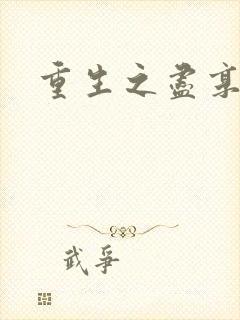 重生之盡
武爭